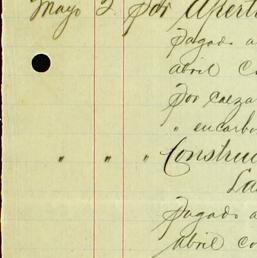 Mayo 2 Por Apertu
Pagado a
abril Co
Por calza
" encarbo
" " " Construc
La
Pagado a
abril co